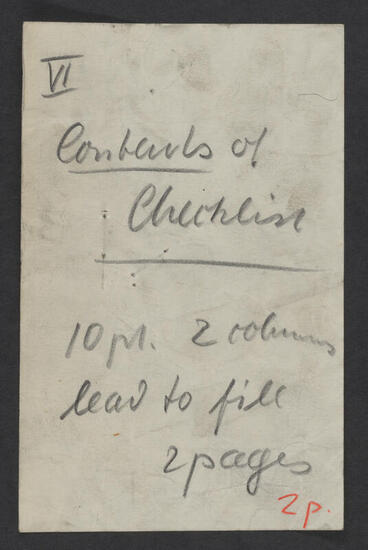 VI
Contents of
Checklist
10 pt. 2 columns
lead to fill
2 pages
2 p.